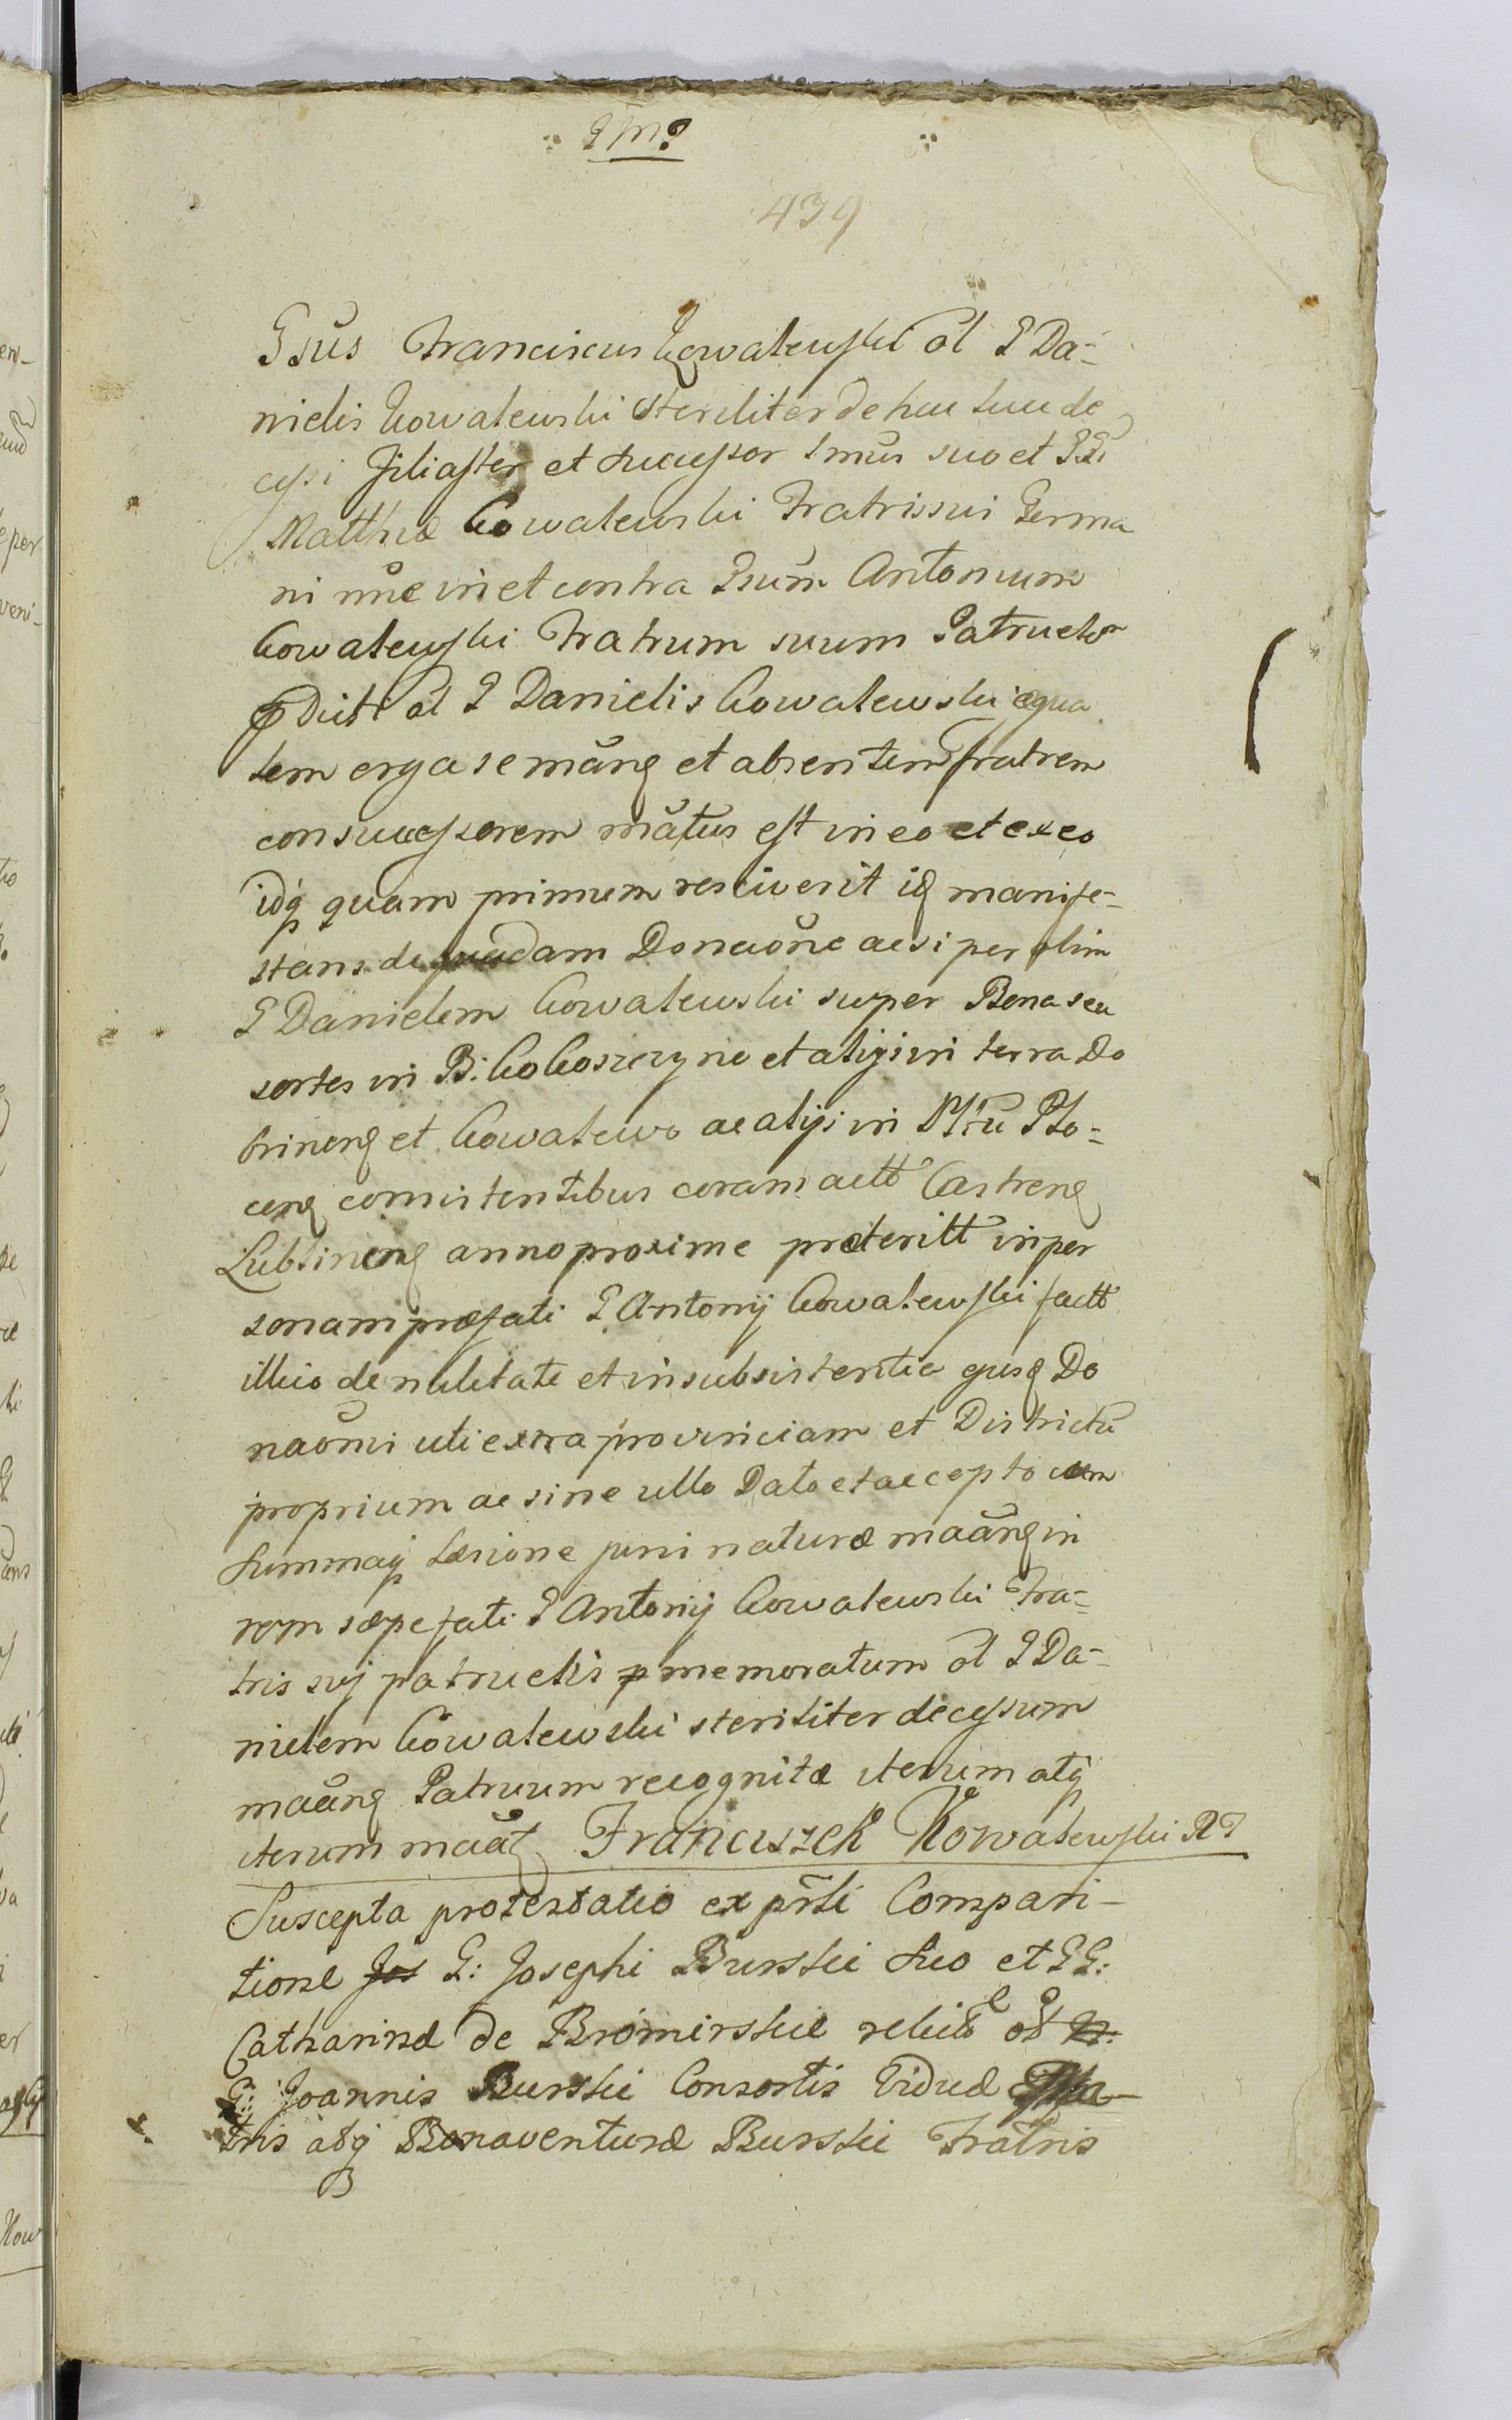 439
Gsus Franciscus Kowalewski ol G Da-
nielis Kowalewski steriliter de hac luce de
cessi Filiaster et Successor Smus suo et GG:
Matthiæ Kowalewski Fratris sui Germa
ni nne in et contra Gsum Antonium
Kowalewski Fratrem suum Patruelem
Dicti ol G Danielis Kowalewski
tem erga se mang et absentem fratrem
consuccessorem matus est in eo et ex eo
idq quam primum resciverit iq manife-
stans de quadam Donaone acsi per olim
G Danielem Kowalewski super Bona seu
sortes in B: Kokoszczyno et alijs in terra Do
brineng et Kowalewo ac alijs in Plo-
ceng consistentibus coram actt Castreng
Lublineng anno proxime præteritt in per
sonam præfati G Antonij Kowalewski factt
illico de nulitate et insubsistentia ejusq Do
naonis uti extra provinciam et Districtu
proprium ac sine ullo Dato et accepto cum
summaq læsione juris naturæ maang in
rem sæpefati G Antonij Kowalewski Fra-
tris suj patruelis p memoratum ol G Da-
nielem Kowalewski steriliter decessum
maang Patruum recognitæ iterum atq
iterum maat Franciszek Kowalewski
Suscepta protestatio ex prsti Compari-
tione Jos G: Josephi Burski suo et GG:
Catharinæ de Bromirskie relictæ ol
G: Joannis Burski Consortis Viduæ
tris atq Bonaventuræ Burski Fratris